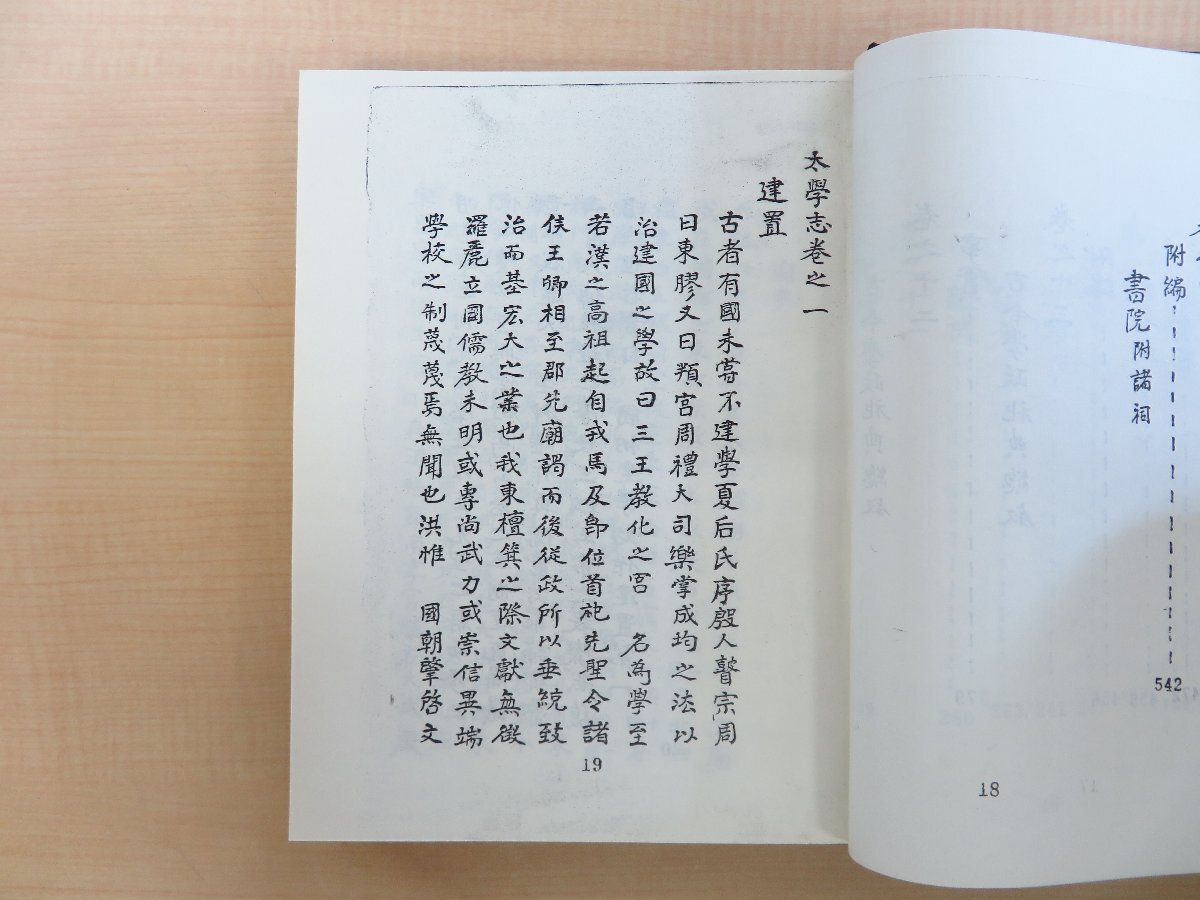 附編 542
書院附諸祠
18
太學志卷之一
建置
古者有國未甞不建學夏后氏序殷人瞽宗周
曰東膠又曰頖宮周禮大司樂掌成均之法以
治建國之學故曰三王教化之宮 名為學至
若漢之高祖起自戎馬及卽位首祀先聖令諸
侯王卿相至郡先廟謁而後從政所以垂統致
治而基宏大之業也我東檀箕之際文獻無徵
羅麗立國儒教未明或專尚武力或崇信異端
學校之制蔑蔑焉無聞也洪惟 國朝肇啓文
19